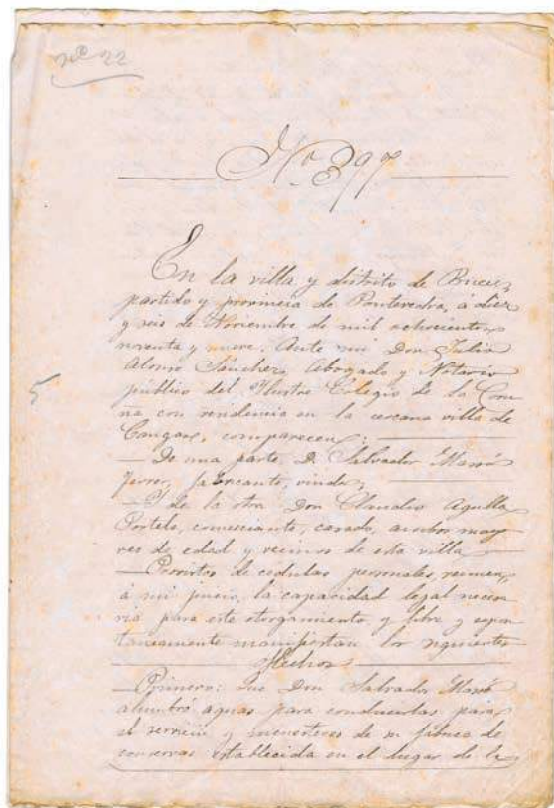 nº 22
Nº 397
En la villa y distrito de Bueu,
partido y provincia de Pontevedra, á diez
y seis de Noviembre de mil ochocientos
noventa y nueve. Ante mi Don Julio
Alonso Sánchez, Abogado y Notario
público del Ilustre Colegio de la Coru
ña con residencia en la cercana villa de
Cangas, comparecen:
De una parte, D. Salvador Massó
Ferrer, fabricante, viudo,
Y de la otra Don Claudio Agulla
Portela, comerciante, casado, ambos mayo
res de edad y vecinos de esta villa
Provistos de cedulas personales, reunen,
á mi juicio, la capacidad legal necesa
ria para este otorgamiento y libre y espon
taneamente manifiestan los siguientes
Hechos:
5
Primero: Que Don Salvador Massó
alumbró aguas para conducirlas para
el servicio y menesteres de su fábrica de
conservas establecida en el lugar de la